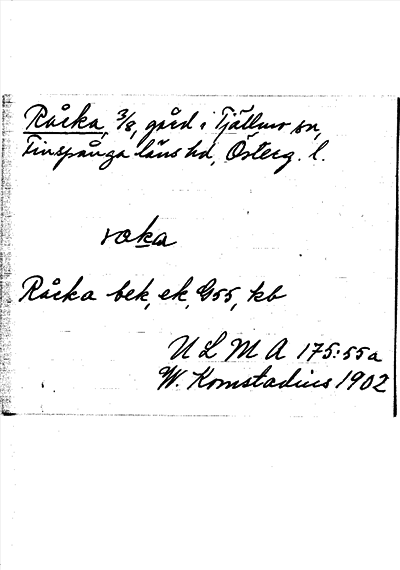 Råcka, 3/8, gård i Tjällmo sn,
Finspånga läns hd, Österg. l.
råka
Råcka bek, ek, G55, kb
U L M A 175:55a
W. Komstadius 1902